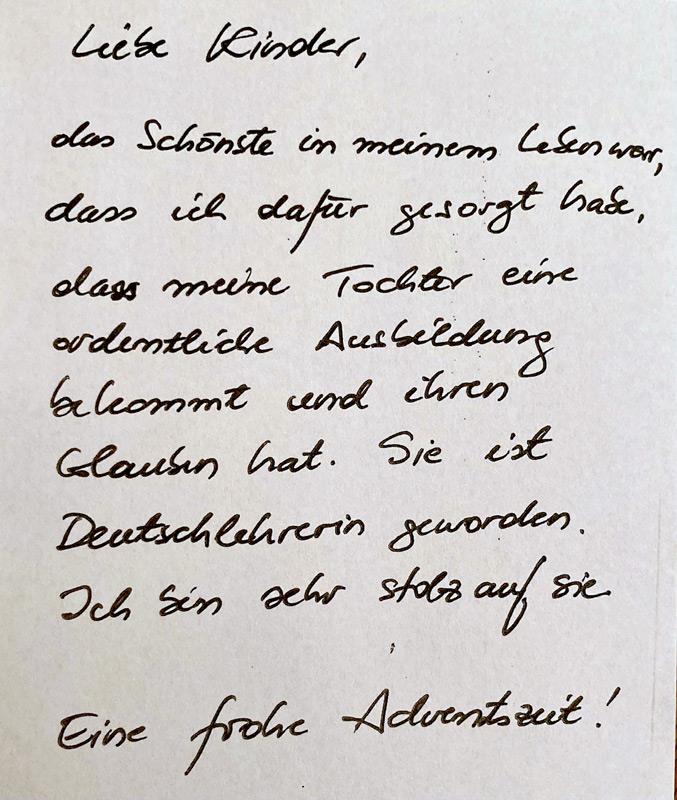 Liebe Kinder,
das Schönste in meinem Leben war,
dass ich dafür gesorgt habe,
dass meine Tochter eine
ordentliche Ausbildung
bekommt und ihren
Glauben hat. Sie ist
Deutschlehrerin geworden.
Ich bin sehr stolz auf sie.
Eine frohe Adventszeit!